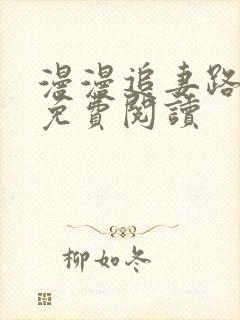 漫漫追妻路
免費閱讀
柳如冬